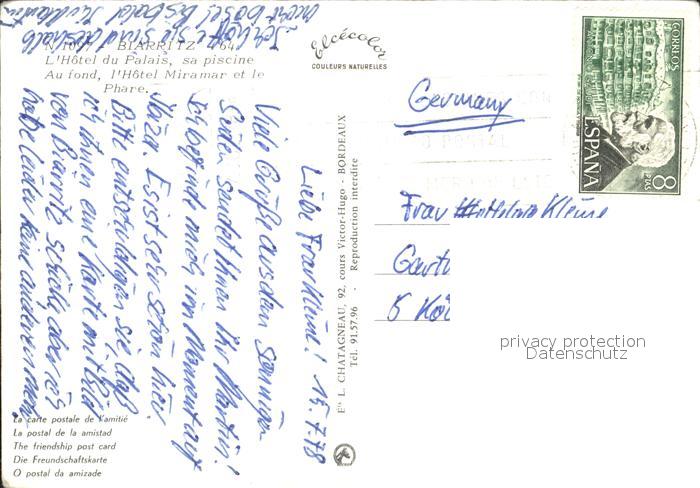 N 1097 BIARRITZ (64)
L'Hôtel du Palais, sa piscine
Au fond, l'Hôtel Miramar et le
Phare.
Elcécolor
COULEURS NATURELLES
Liebe Frau Kleine! 15.7.78
Viele Grüße aus dem sonnigen
Süden sendet Ihnen Ihr Martin!
Ich befinde mich im Moment auf
Ibiza. Es ist sehr schön hier
Bitte entschuldigen sie, daß
ich ihnen eine Karte mit Bild
von Biarritz schicke aber ich
habe leider keine anderen mehr
Ich hoffe sie sind deshalb
nicht böse!
Ets L. CHATAGNEAU, 92, cours Victor-Hugo - BORDEAUX
Tél. 91.57.96 · Reproduction interdite
Germany
Frau Kleine
5 Köl
CORREOS
ESPAÑA
8 PTAS
privacy protection
Datenschutz
La carte postale de l'amitié
La postal de la amistad
The friendship post card
Die Freundschaftskarte
O postal da amizade